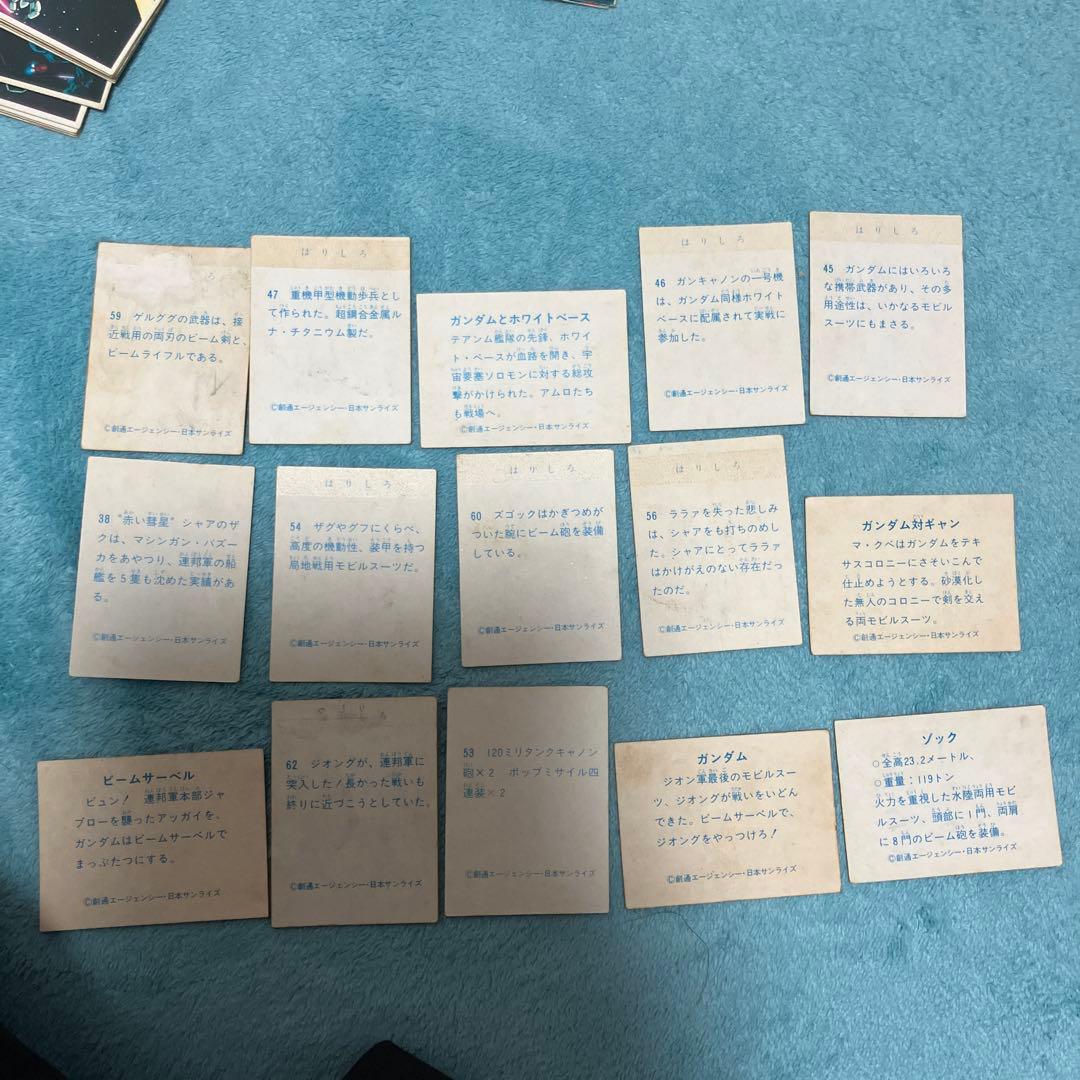 ろ
59 ゲルググの武器は、接
近戦用の両刃のビーム剣と、
ビームライフルである。
©創通エージェンシー・日本サンライズ
はりしろ
47 重機甲型機動歩兵とし
て作られた。超鋼合金属ル
ナ・チタニウム製だ。
©創通エージェンシー・日本サンライズ
ガンダムとホワイトベース
テアンム艦隊の先鋒、ホワイ
ト・ベースが血路を開き、宇
宙要塞ソロモンに対する総攻
撃がかけられた。アムロたち
も戦場へ。
©創通エージェンシー・日本サンライズ
はりしろ
46 ガンキャノンの一号機
は、ガンダム同様ホワイト
ベースに配属されて実戦に
参加した。
©創通エージェンシー・日本サンライズ
はりしろ
45 ガンダムにはいろいろ
な携帯武器があり、その多
用途性は、いかなるモビル
スーツにもまさる。
©創通エージェンシー・日本サンライズ
38 “赤い彗星”シャアのザ
クは、マシンガン・バズー
カをあやつり、連邦軍の船
艦を5隻も沈めた実績があ
る。
©創通エージェンシー・日本サンライズ
はりしろ
54 ザグやグフにくらべ、
高度の機動性、装甲を持つ
局地戦用モビルスーツだ。
©創通エージェンシー・日本サンライズ
はりしろ
60 ズゴックはかぎつめが
ついた腕にビーム砲を装備
している。
©創通エージェンシー・日本サンライズ
はりしろ
56 ララァを失った悲しみ
は、シャアをも打ちのめし
た。シャアにとってララァ
はかけがえのない存在だっ
たのだ。
©創通エージェンシー・日本サンライズ
ガンダム対ギャン
マ・クベはガンダムをテキ
サスコロニーにさそいこんで
仕止めようとする。砂漠化し
た無人のコロニーで剣を交え
る両モビルスーツ。
©創通エージェンシー・日本サンライズ
ビームサーベル
ビュン! 連邦軍本部ジャ
ブローを襲ったアッガイを、
ガンダムはビームサーベルで
まっぷたつにする。
©創通エージェンシー・日本サンライズ
62 ジオングが、連邦軍に
突入した!長かった戦いも
終りに近づこうとしていた。
©創通エージェンシー・日本サンライズ
53 120ミリタンクキャノン
砲×2 ポップミサイル四
連装×2
©創通エージェンシー・日本サンライズ
ガンダム
ジオン軍最後のモビルスー
ツ、ジオングが戦いをいどん
できた。ビームサーベルで、
ジオングをやっつけろ!
©創通エージェンシー・日本サンライズ
ゾック
○全高23.2メートル、
○重量:119トン
火力を重視した水陸両用モビ
ルスーツ、頭部に1門、両肩
に8門のビーム砲を装備。
©創通エージェンシー・日本サンライズ